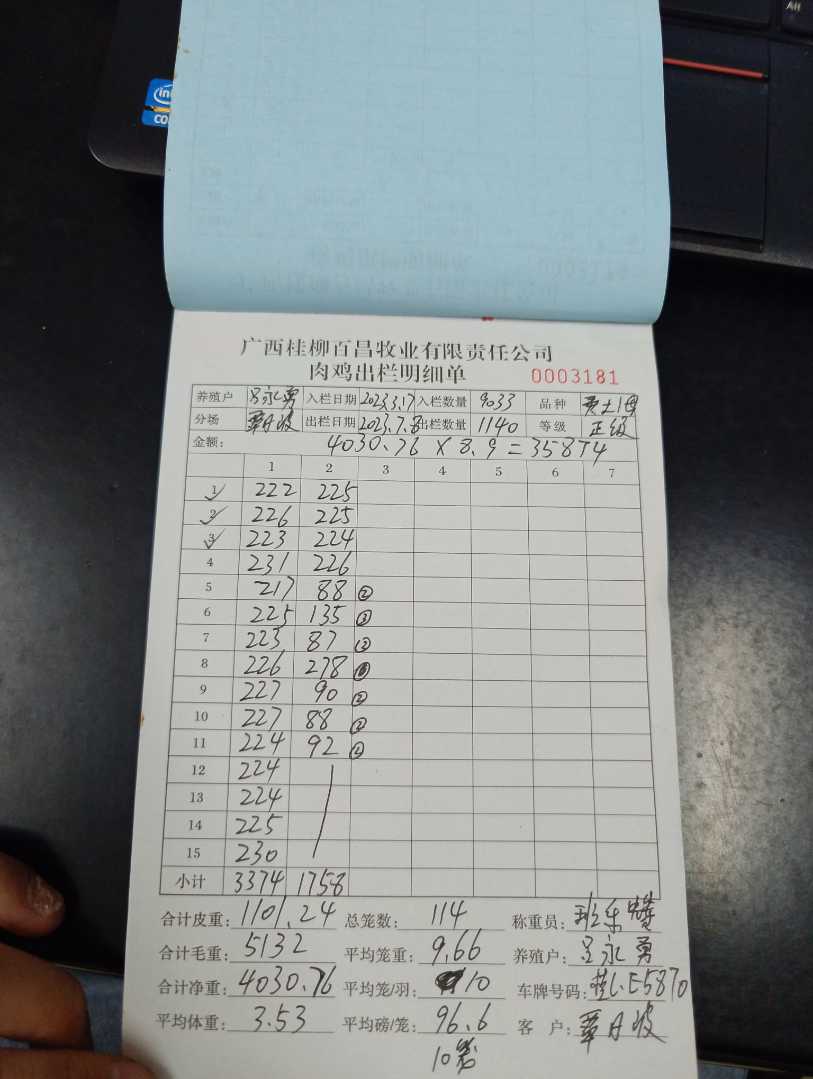 广西桂柳百昌牧业有限责任公司
肉鸡出栏明细单 0003181
养殖户 吕永勇 入栏日期 2023.3.17 入栏数量 9033 品种
分场 覃月波 出栏日期 2023.7.8 出栏数量 1140 等级 正级
金额: 4030.76 × 8.9 = 35874
1 2 3 4 5 6 7
1 222 225
2 226 225
3 223 224
4 231 226
5 217 88 ②
6 225 135 ③
7 223 87 ②
8 226 278
9 227 90 ②
10 227 88 ②
11 224 92 ②
12 224
13 224
14 225
15 230
小计 3374 1758
合计皮重: 1101.24 总笼数: 114 称重员:
合计毛重: 5132 平均笼重: 9.66 养殖户: 吕永勇
合计净重: 4030.76 平均笼/羽: 10 车牌号码: 桂L.E5870
平均体重: 3.53 平均磅/笼: 96.6 客 户: 覃月波